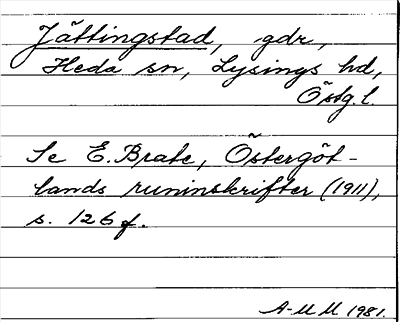 Jättingstad, gdr,
Heda sn, Lysings hd,
Östg. l.
Se E. Brate, Östergöt-
lands runinskrifter (1911),
s. 126 f.
A-M M 1981.